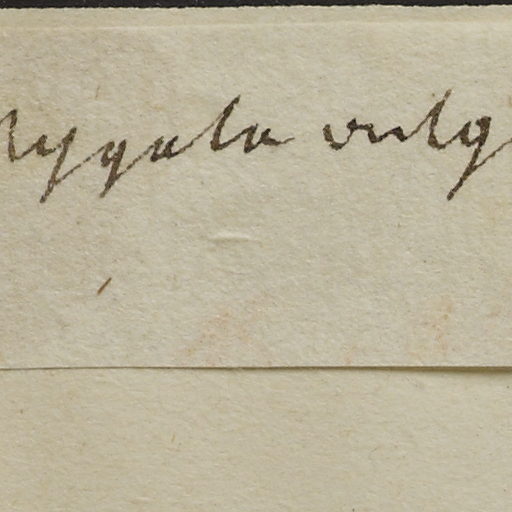 lygala vulg